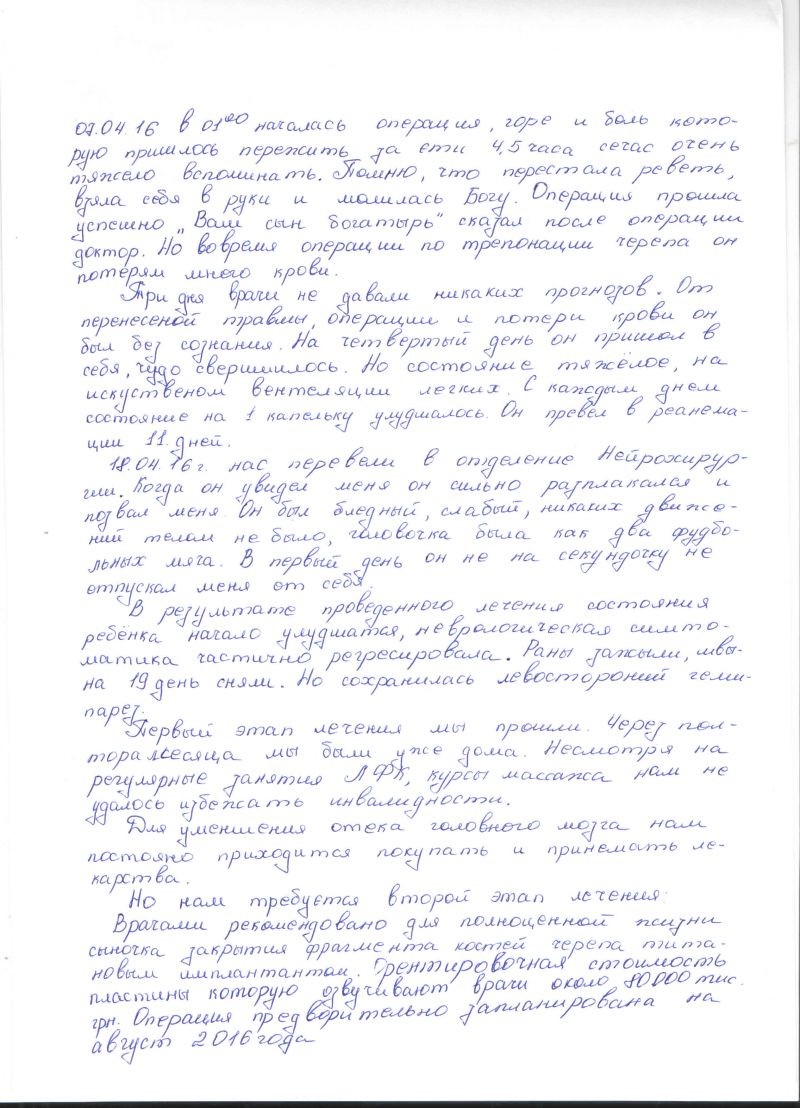 07.04.16 в 01⁰⁰ началась операция, горе и боль кото-
рую пришлось пережить за ети 4,5 часа сечас очень
тяжело вспоминать. Помню, что перестала реветь,
взяла себя в руки и молилась Богу. Операция прошла
успешно „Ваш сын богатырь" сказал после операции
доктор. Но вовремя операции по трепонации черепа он
потерял много крови.
Три дня врачи не давали никаких прогнозов. От
перенесеной травмы, операции и потери крови он
был без сознания. На четвертый день он пришол в
себя, чудо свершишлось. Но состояние тяжёлое, на
искуственом вентеляции легких. С каждым днем
состояние на 1 капельку улудшалось. Он превёл в реанема-
ции 11 дней.
18.04.16 г. нас перевели в отделение Нейрохирур-
гии. Когда он увидел меня он сильно разплакался и
позвал меня. Он был бледный, слабый, никаких движе-
ний телом не было, головочка была как два фудбо-
льных мяча. В первый день он не на секундочку не
отпускал меня от себя.
В результате проведенного лечения состояния
ребёнка начало улудшатся, неврологическая симто-
матика частично регресировала. Раны зажыли, швы-
на 19 день сняли. Но сохранилась левостороний геми-
парез.
Первый этап лечения мы прошли. Через пол-
тора месяца мы были уже дома. Несмотря на
регулярные занятия ЛФК, курсы массажа нам не
удалось избежать инвалидности.
Для уменшения отека головного мозга нам
постояно приходится покупать и принемать ле-
карства.
Но нам требуется второй этап лечения:
Врачами рекомендовано для полноценной жизни
сыночка закрытия фрагмента костей черепа тита-
новым имплантантом. Орентировочная стоимость
пластины которую озвучивают врачи около 80000 тис.
грн. Операция предворительно запланирована на
август 2016 года